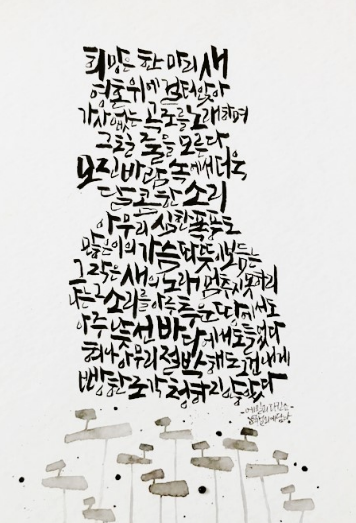 희망은 한 마리 새
영혼 위에 걸터앉아
가사 없는 곡조를 노래하며
그칠 줄을 모른다
모진 바람 속에서 더욱
달콤한 소리
아무리 심한 폭풍도
많은 이의 가슴 따뜻이 보듬는
그 작은 새의 노래 멈추지 못하리
나는 그 소리를 아주 추운 땅에서도
아주 낯선 바다에서도 들었다
허나 아무리 절박해도 그건 내게
빵 한 조각 청하지 않았다
-에밀리 디킨슨-